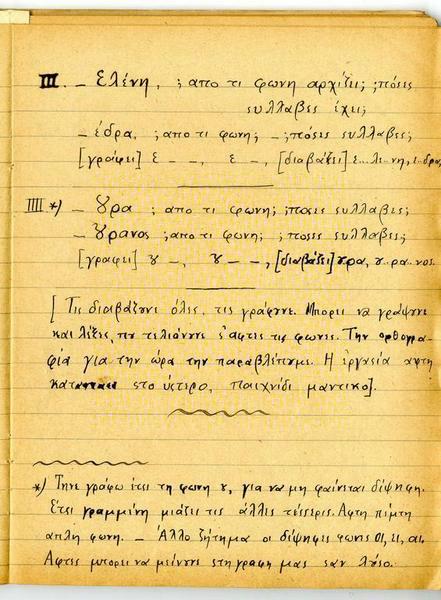 III. – Ελένη, ; απο τι φωνη αρχίζει; ; πόσες
συλλαβες έχει;
– έδρα, ; απο τι φωνη; – ; πόσες συλλαβες;
[γράφει] ε – –, ε –, [διαβάζει] ε...λε..νη, ε..δρα,
IIII *) – ȣρα ; απο τι φωνη; ; ποσες συλλαβες;
– ȣρανος ; απο τι φωνη; ; πόσες συλλαβες;
[γραφει] ȣ –, ȣ – –, [διαβάζει] ȣρα, ȣ..ρα..νος.
[Τις διαβάζȣνε όλες, τις γράφȣνε. Μπορει να γράψȣνε
και λέξες, πȣ τελιόνȣνε σ'αφτες τις φωνες. Την ορθογρα-
φία για την ώρα την παραβλέπȣμε. Η εργεσία αφτη
στο ύστερο, παιχνίδι μαντικο].
*) Τηνε γράφω έτσι τη φωνη ȣ, για να μη φαίνεται δίψηφη.
Έτσι γραμμένη μιάζει τις άλλες τέσσερες. Αφτη πέμτη
απλη φωνη. – Άλλο ζήτημα οι δίψηφες φωνες οι, ει, αι.
Αφτες μπορει να μείνȣνε στη γραφη μας σαν